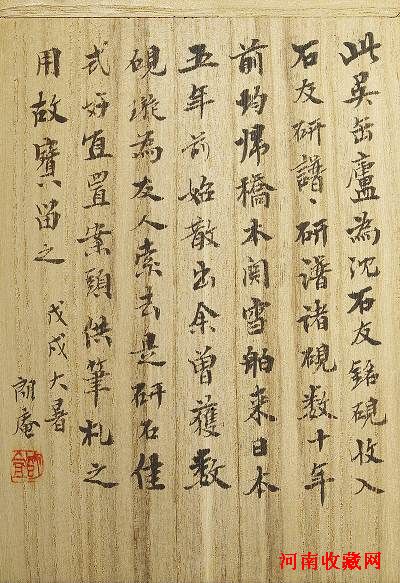 此吴缶廬為沈石友銘硯收入
石友研譜、研譜諸硯數十年
前均帰橋本関雪舶来日本
五年前始散出余曾獲數
硯旋為友人索去是研石佳
式好宜置案頭供筆札之
用故寶留之
戊戌大暑
朗庵
河南收藏网